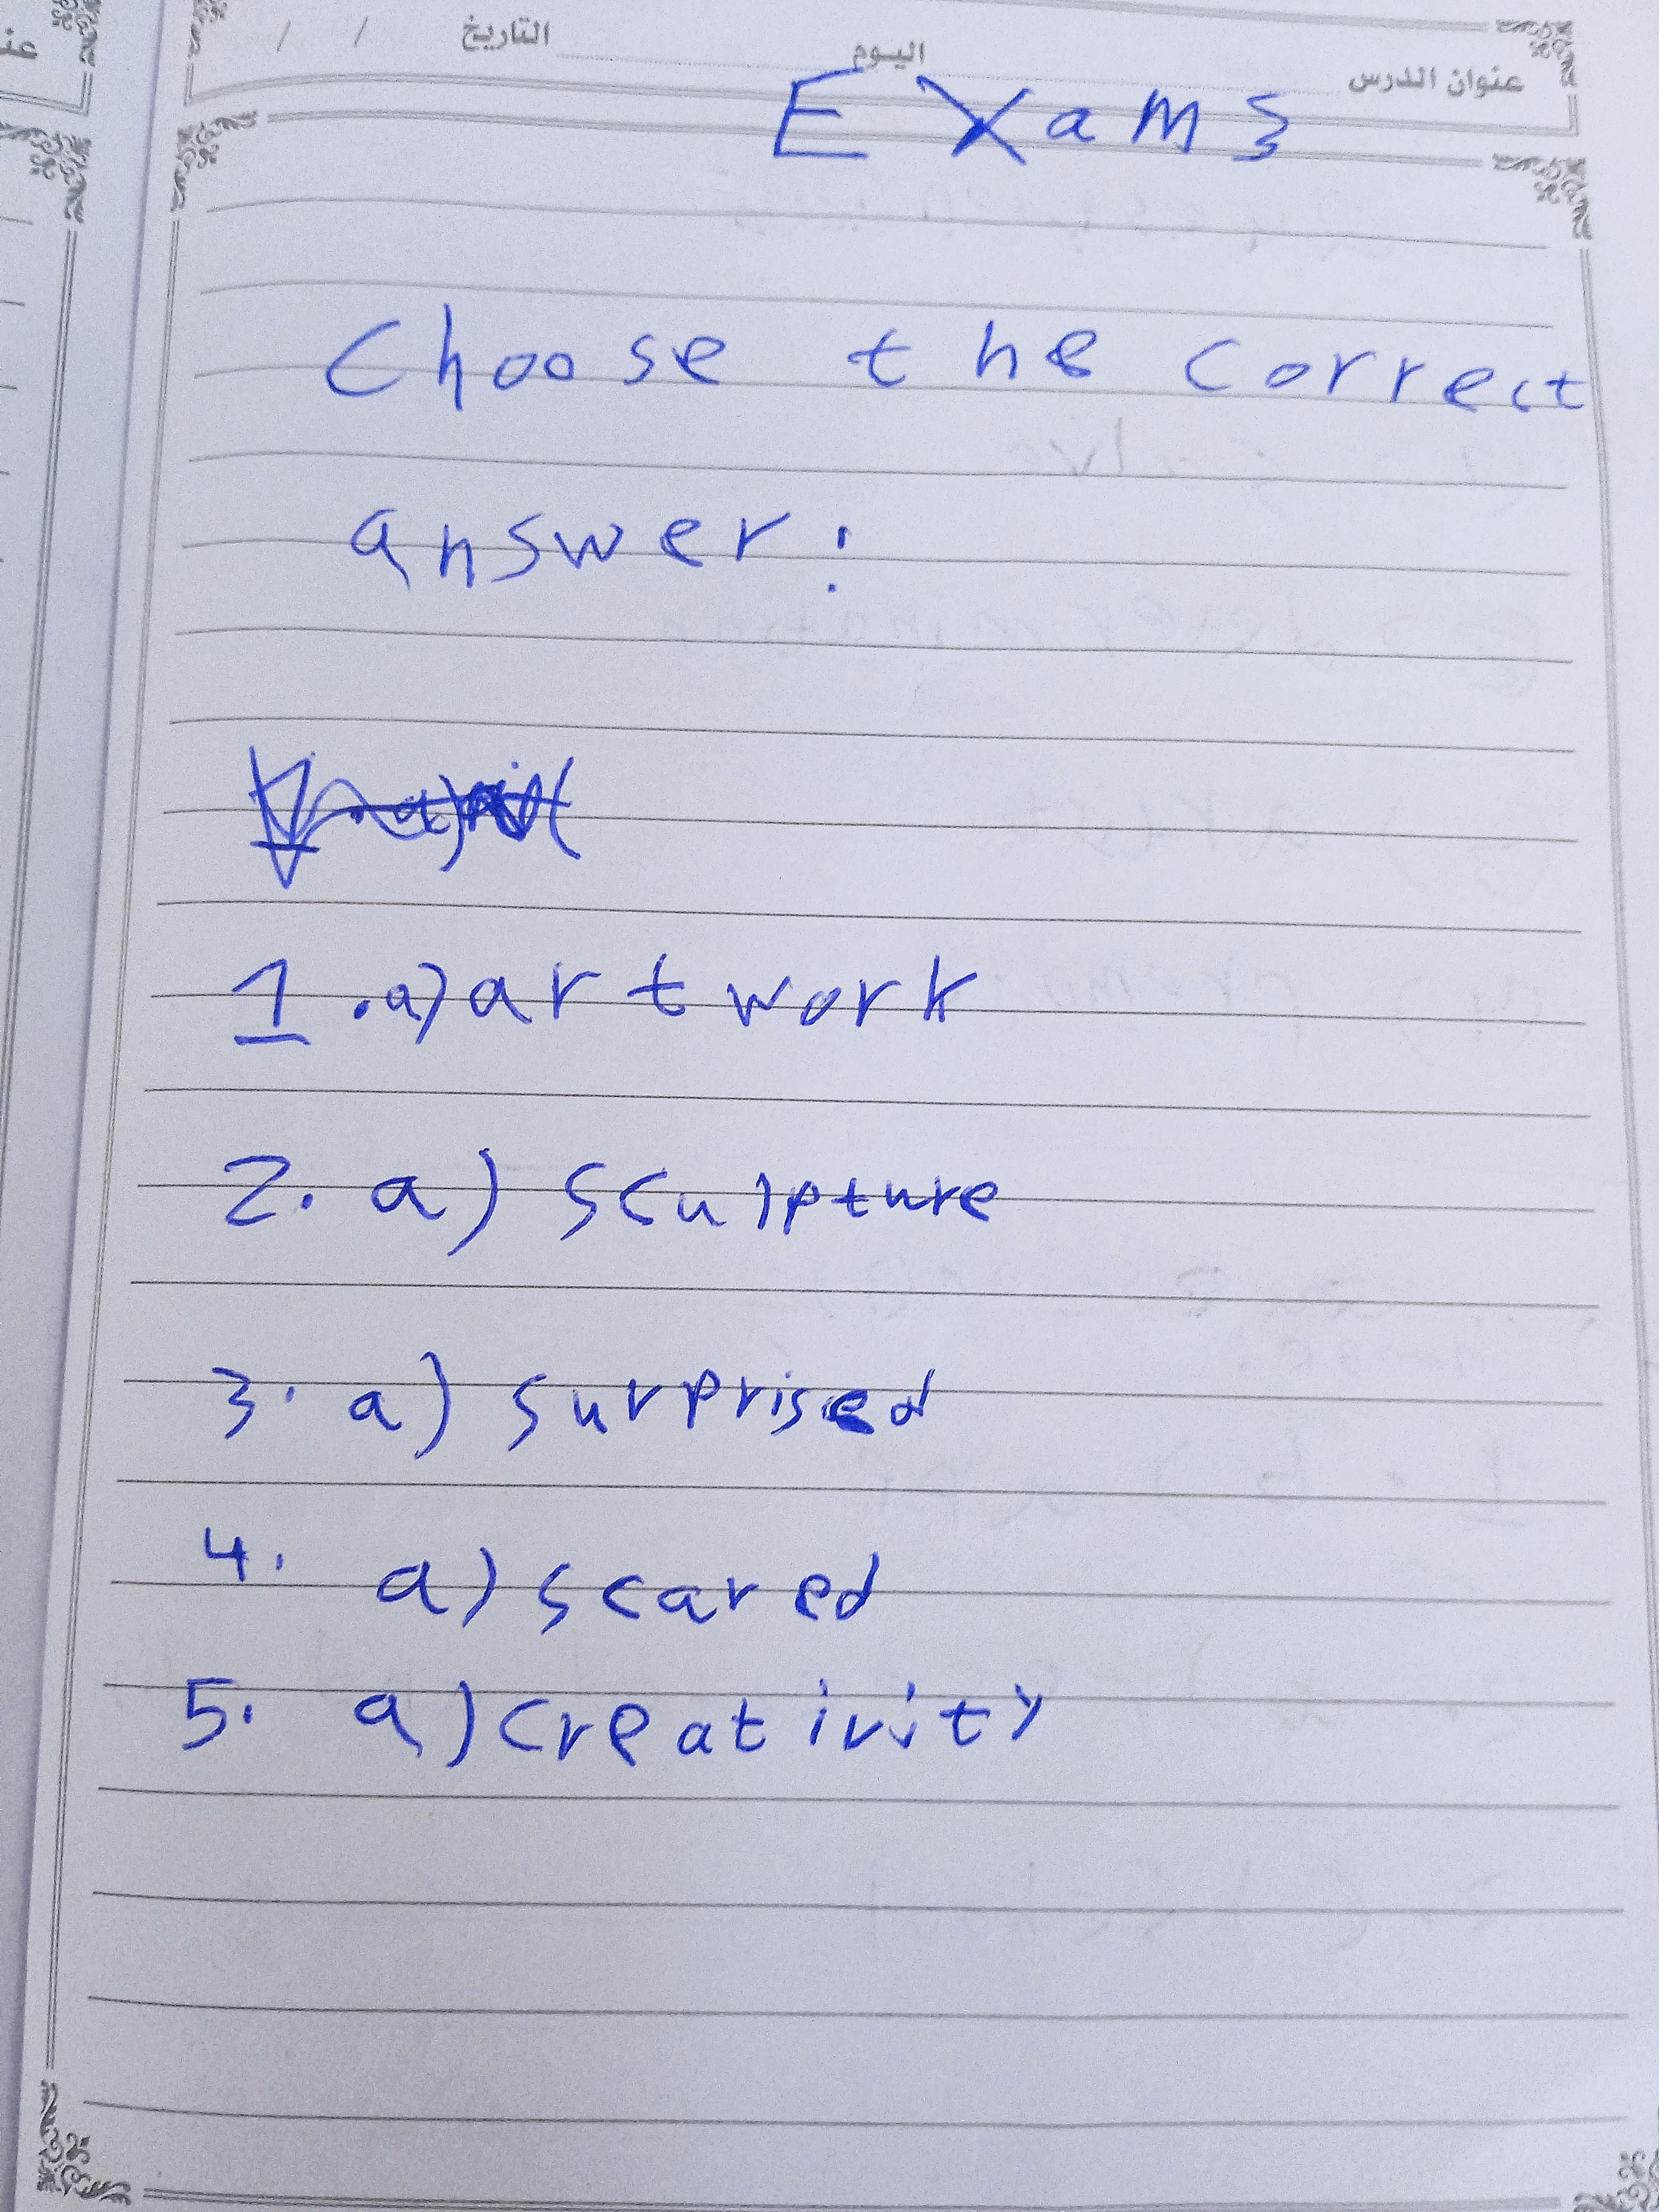 عنوان الدرس اليوم التاريخ / /
Exams
Choose the correct
answer:
1.a) artwork
2. a) sculpture
3. a) surprised
4. a) scared
5. a) creativity